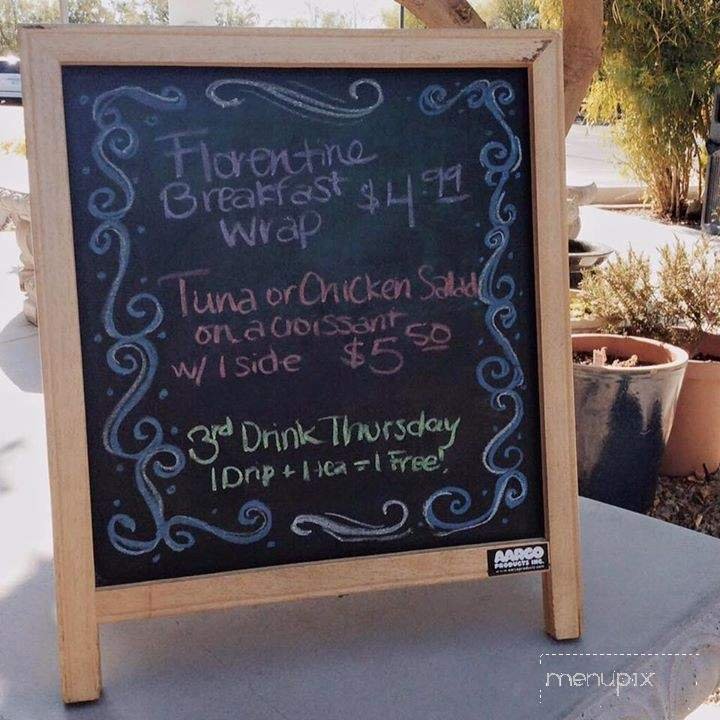 Florentine
Breakfast $4.99
Wrap
Tuna or Chicken Salad
on a croissant
w/ 1 side $5 50
3rd Drink Thursday
1 Drip + 1 tea = 1 Free!
AARCO
PRODUCTS INC.
menupix